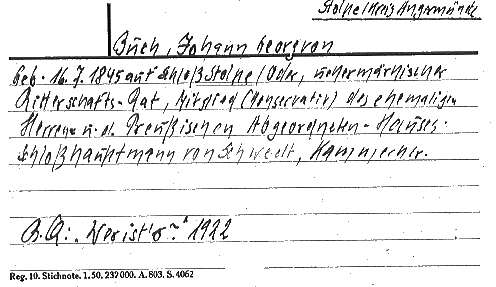 Stolpe/Kreis Angermünde
Buch, Johann Georg von
Geb. 16.7.1845 auf Schloß Stolpe/Oder, uckermärkischer
Ritterschafts-Rat, Mitglied (Konservativ) des ehemaligen
Herren- u. d. Preußischen Abgeordneten-Hauses.
Schloßhauptmann von Schwedt, Kammerherr.
B.Q.: „Wer ist's?" 1922
Reg. 10. Stichnote. 1. 50. 232000. A. 803. S. 4062